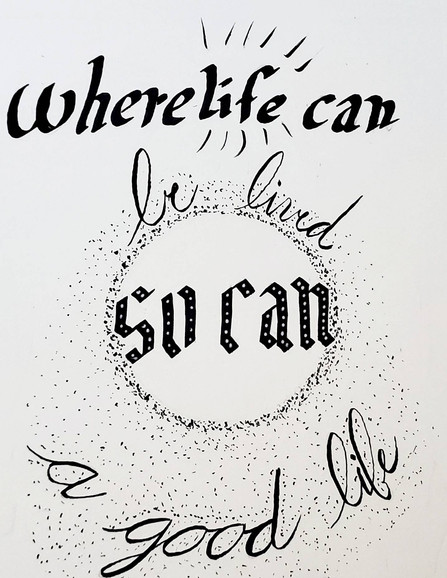 where life can
be lived
so can
a good life